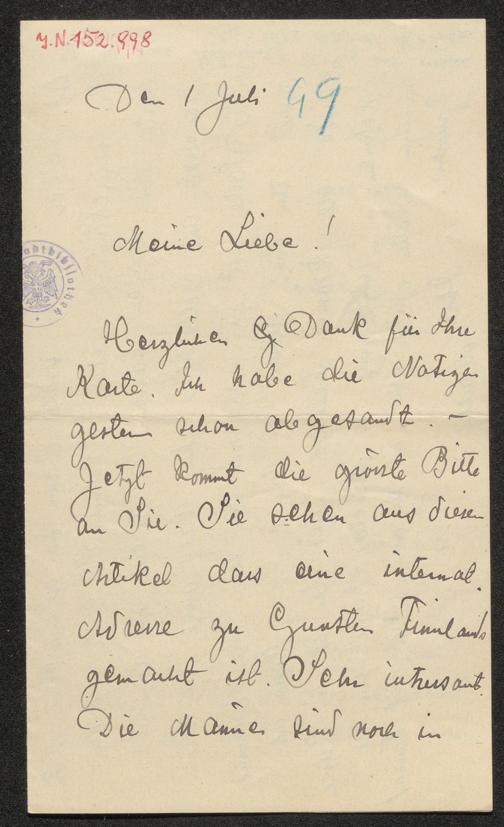 J.N. 152.998
Den 1 Juli 99
Meine Liebe!
Herzlichen Dank für Ihre
Karte. Ich habe die Notizen
gestern schon abgesandt. –
Jetzt kommt die grösste Bitte
an Sie. Sie sehen aus diesen
Artikel dass eine internat.
Adresse zu Gunsten Finnlands
gemacht ist. Sehr intressant.
Die Männer sind noch in